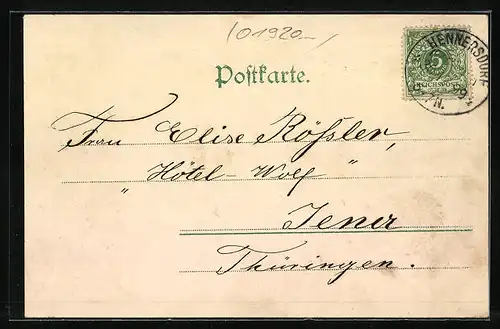 (01920.-)
HENNERSDORF
5
REICHSPOST
Postkarte.
Frau Elise Rößler,
"Hôtel - Wolf"
Jena
Thüringen.